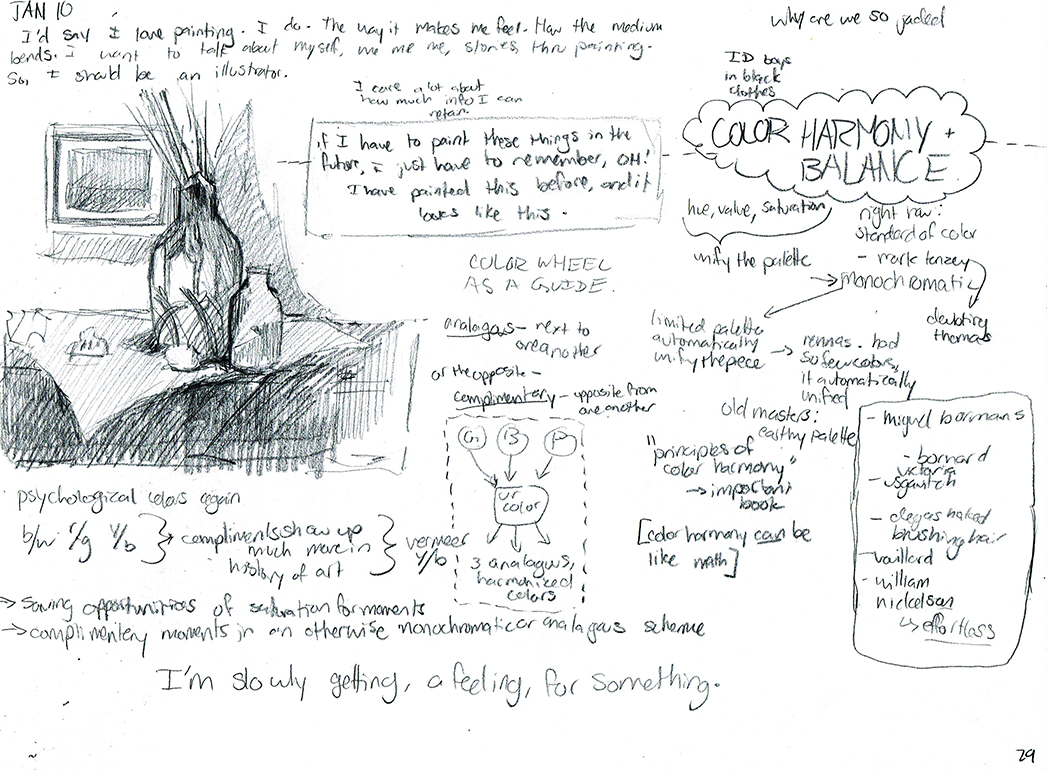 JAN 10
I'd say I love painting. I do. The way it makes me feel. How the medium
bends. I want to talk about myself, me me me, stories thru painting.
So, I should be an illustrator.
why are we so jaded
ID boys
in black
clothes
I care a lot about
how much info I can
retain.
if I have to paint these things in the
future, I just have to remember, OH!
I have painted this before, and it
looks like this.
COLOR HARMONY +
BALANCE.
hue, value, saturation
unify the palette
right raw:
standard of color
- mark tanzey
→ monochromatic
doubting
thomas
COLOR WHEEL
AS A GUIDE.
analagous - next to
oneanother
or the opposite -
complimentary - opposite from
one another
G B P
ur
color
3 analagous,
harmonized
colors
limited palette
automatically
unify the piece
→ rennas. had
so few colors,
it automatically
unified
old masters:
earthy palette
"principles of
color harmony"
→ important
book
[color harmony can be
like math]
- miguel bormans
- bornard
victoria
- degas naked
brushing hair
- vuillard
- william
nickelson
↳ effortless
psychological colors again
b/w r/g y/b
compliments show up
much more in
history of art
vermeer
y/b
→ saving opportunities of saturation for moments
→ complimentery moments in an otherwise monochromatic or analagous scheme
I'm slowly getting, a feeling, for something.
~
29